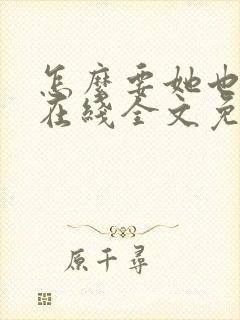 怎麽要她也
在綫全文免
原千尋